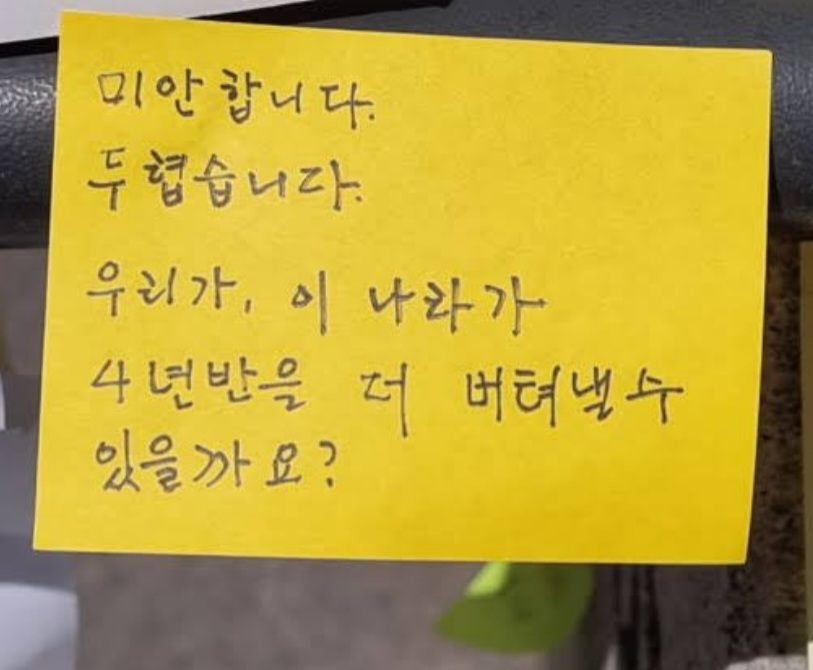 미안합니다.
두협습니다.
우리가, 이 나라가
4년반을 더 버텨낼수
있을까요?